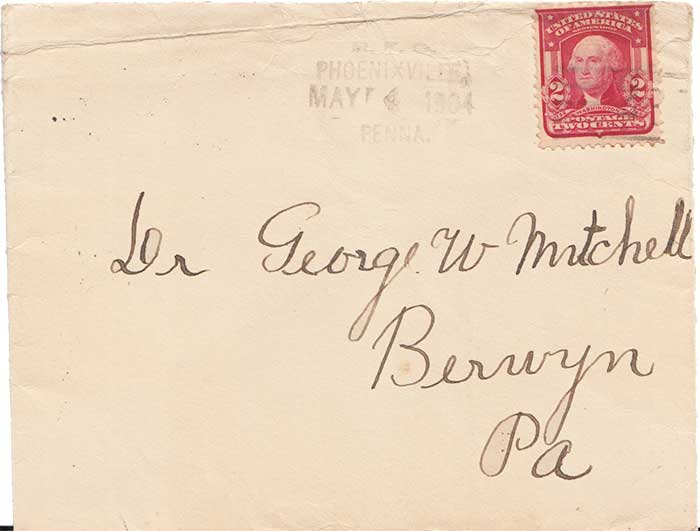 R.F.D.
PHOENIXVILLE
MAY 4 1904
PENNA.
UNITED STATES
OF AMERICA
2 2
WASHINGTON
POSTAGE
TWO CENTS
Dr George W Mitchell
Berwyn
Pa